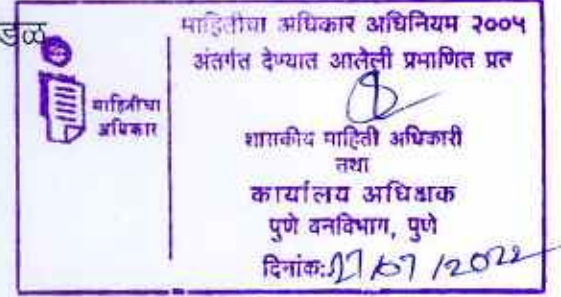 डळ
माहितीचा अधिकार अधिनियम २००५
अंतर्गत देण्यात आलेली प्रमाणित प्रत
माहितीचा
अधिकार
शासकीय माहिती अधिकारी
तथा
कार्यालय अधिक्षक
पुणे वनविभाग, पुणे
दिनांक: /07/2022